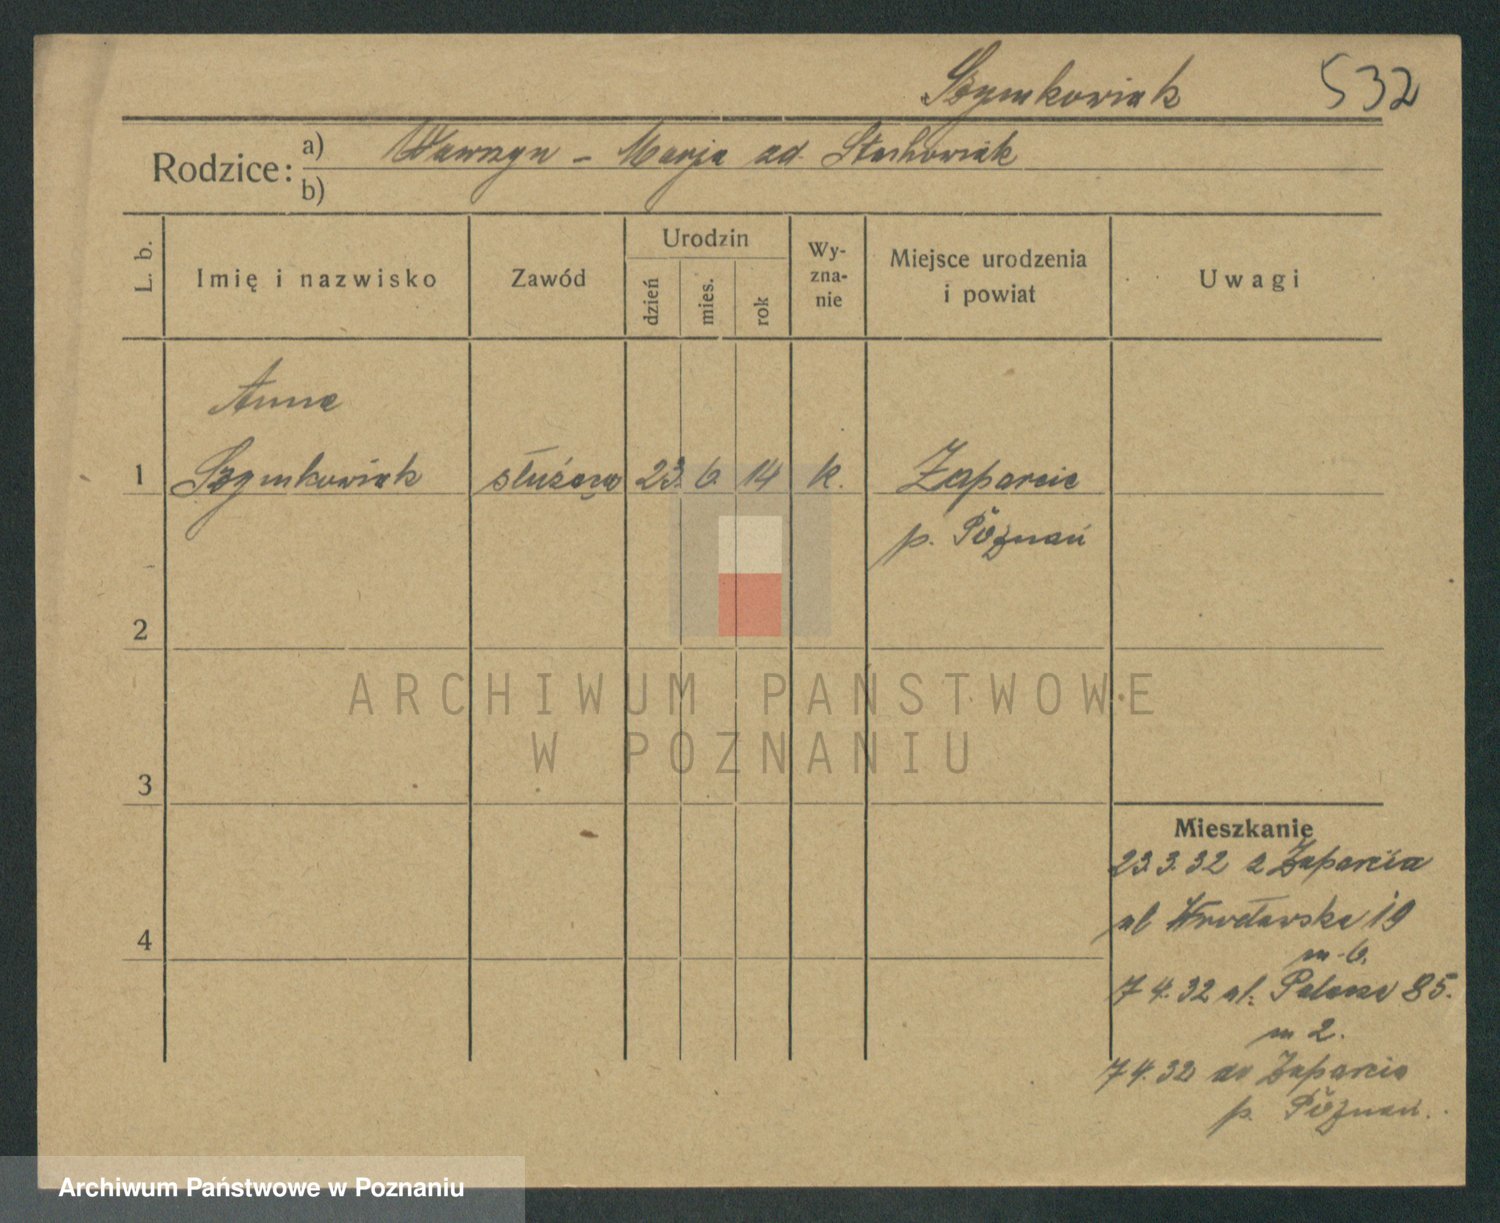 Szymkowiak 532
Rodzice: a) Wawrzyn - Marja zd. Stachowiak
b)
L. b.
Imię i nazwisko
Zawód
Urodzin
dzień
mies.
rok
Wy-
zna-
nie
Miejsce urodzenia
i powiat
Uwagi
Anna
1 Szymkowiak służąca 23. 6. 14 k. Zaparcie
p. Poznań
2
ARCHIWUM PAŃSTWOWE
W POZNANIU
3
Mieszkanie
23.3.32 z Zaparcia
ul Wrocławska 19
m 6.
4
7 4. 32 ul: Palacza 85.
m 2.
7 4. 32 do Zaparcia
p. Poznań.
Archiwum Państwowe w Poznaniu